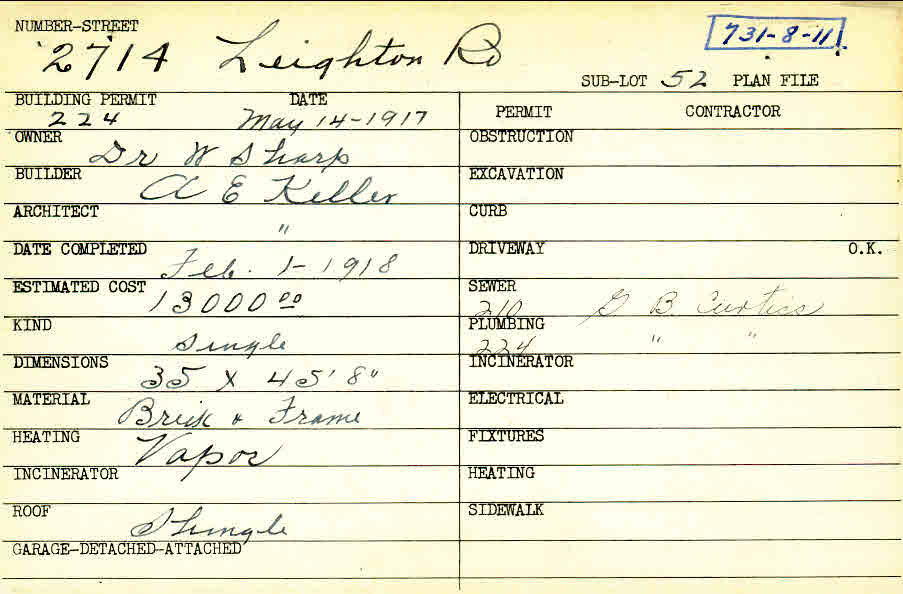 NUMBER-STREET
2714 Leighton Rd
731-8-11
SUB-LOT 52 PLAN FILE
BUILDING PERMIT DATE
224 May 14-1917
OWNER
Dr W Sharp
BUILDER
A E Keller
ARCHITECT
"
DATE COMPLETED
Feb. 1-1918
ESTIMATED COST
13000 00
KIND
Single
DIMENSIONS
35 X 45' 8"
MATERIAL
Brick & Frame
HEATING
Vapor
INCINERATOR
ROOF
Shingle
GARAGE-DETACHED-ATTACHED
PERMIT CONTRACTOR
OBSTRUCTION
EXCAVATION
CURB
DRIVEWAY O.K.
SEWER
210 G B Curtiss
PLUMBING
224 " "
INCINERATOR
ELECTRICAL
FIXTURES
HEATING
SIDEWALK